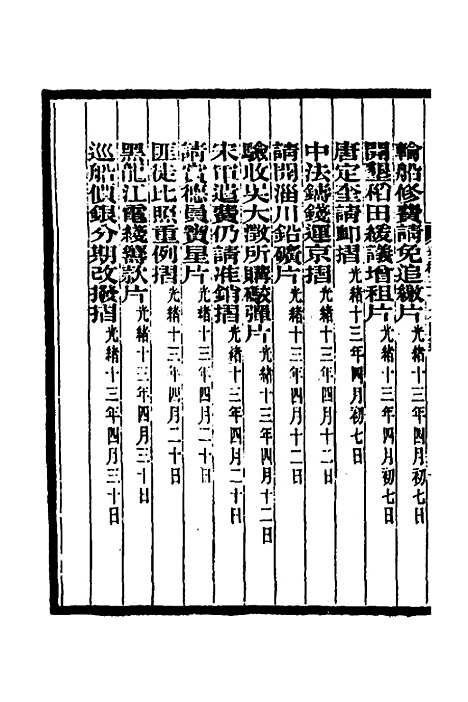 輪船修費請免追繳片光緒十三年四月初七日
開墾稻田緩議增租片光緒十三年四月初七日
唐定奎請卹摺光緒十三年四月初七日
中法鑄錢運京摺光緒十三年四月十二日
請開淄川鉛礦片光緒十三年四月十二日
驗收吳大澂所購砲彈片光緒十三年四月十二日
宋軍過費仍請准銷摺光緒十三年四月二十日
請賞德員寶星片光緒十三年四月二十日
匪徒比照重例摺光緒十三年四月二十日
黑龍江電綫籌款片光緒十三年四月三十日
巡船價銀分期改撥摺光緒十三年四月三十日